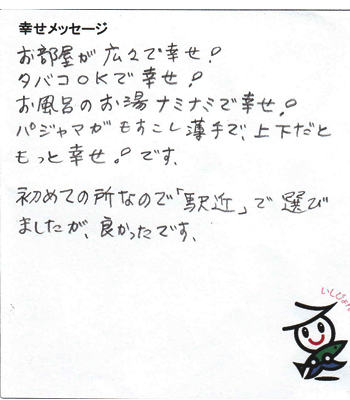 幸せメッセージ
お部屋が広々で幸せ!
タバコOKで幸せ!
お風呂のお湯ナミナミで幸せ!
パジャマがもすこし薄手で、上下だと
もっと幸せ!です、
初めての所なので「駅近」で選び
ましたが、良かったです、